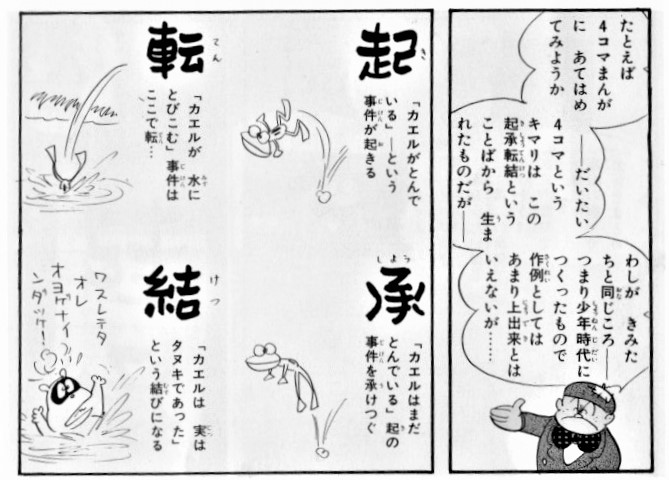 たとえば
4コマまんが
に あてはめ
てみようか
――だいたい
4コマという
キマリは この
起承転結という
ことばから 生ま
れたものだが――
わしが きみた
ちと同じころ――
つまり少年時代に
つくったもので
作例としては
あまり上出来とは
いえないが……
起
「カエルがとんで
いる」―という
事件が起きる
承
「カエルはまだ
とんでいる」起の
事件を承けつぐ
転
「カエルが 水に
とびこむ」事件は
ここで転…
結
「カエルは 実は
タヌキであった」
という結びになる
ワスレテタ
オレ
オヨゲナイ
ンダッケ!